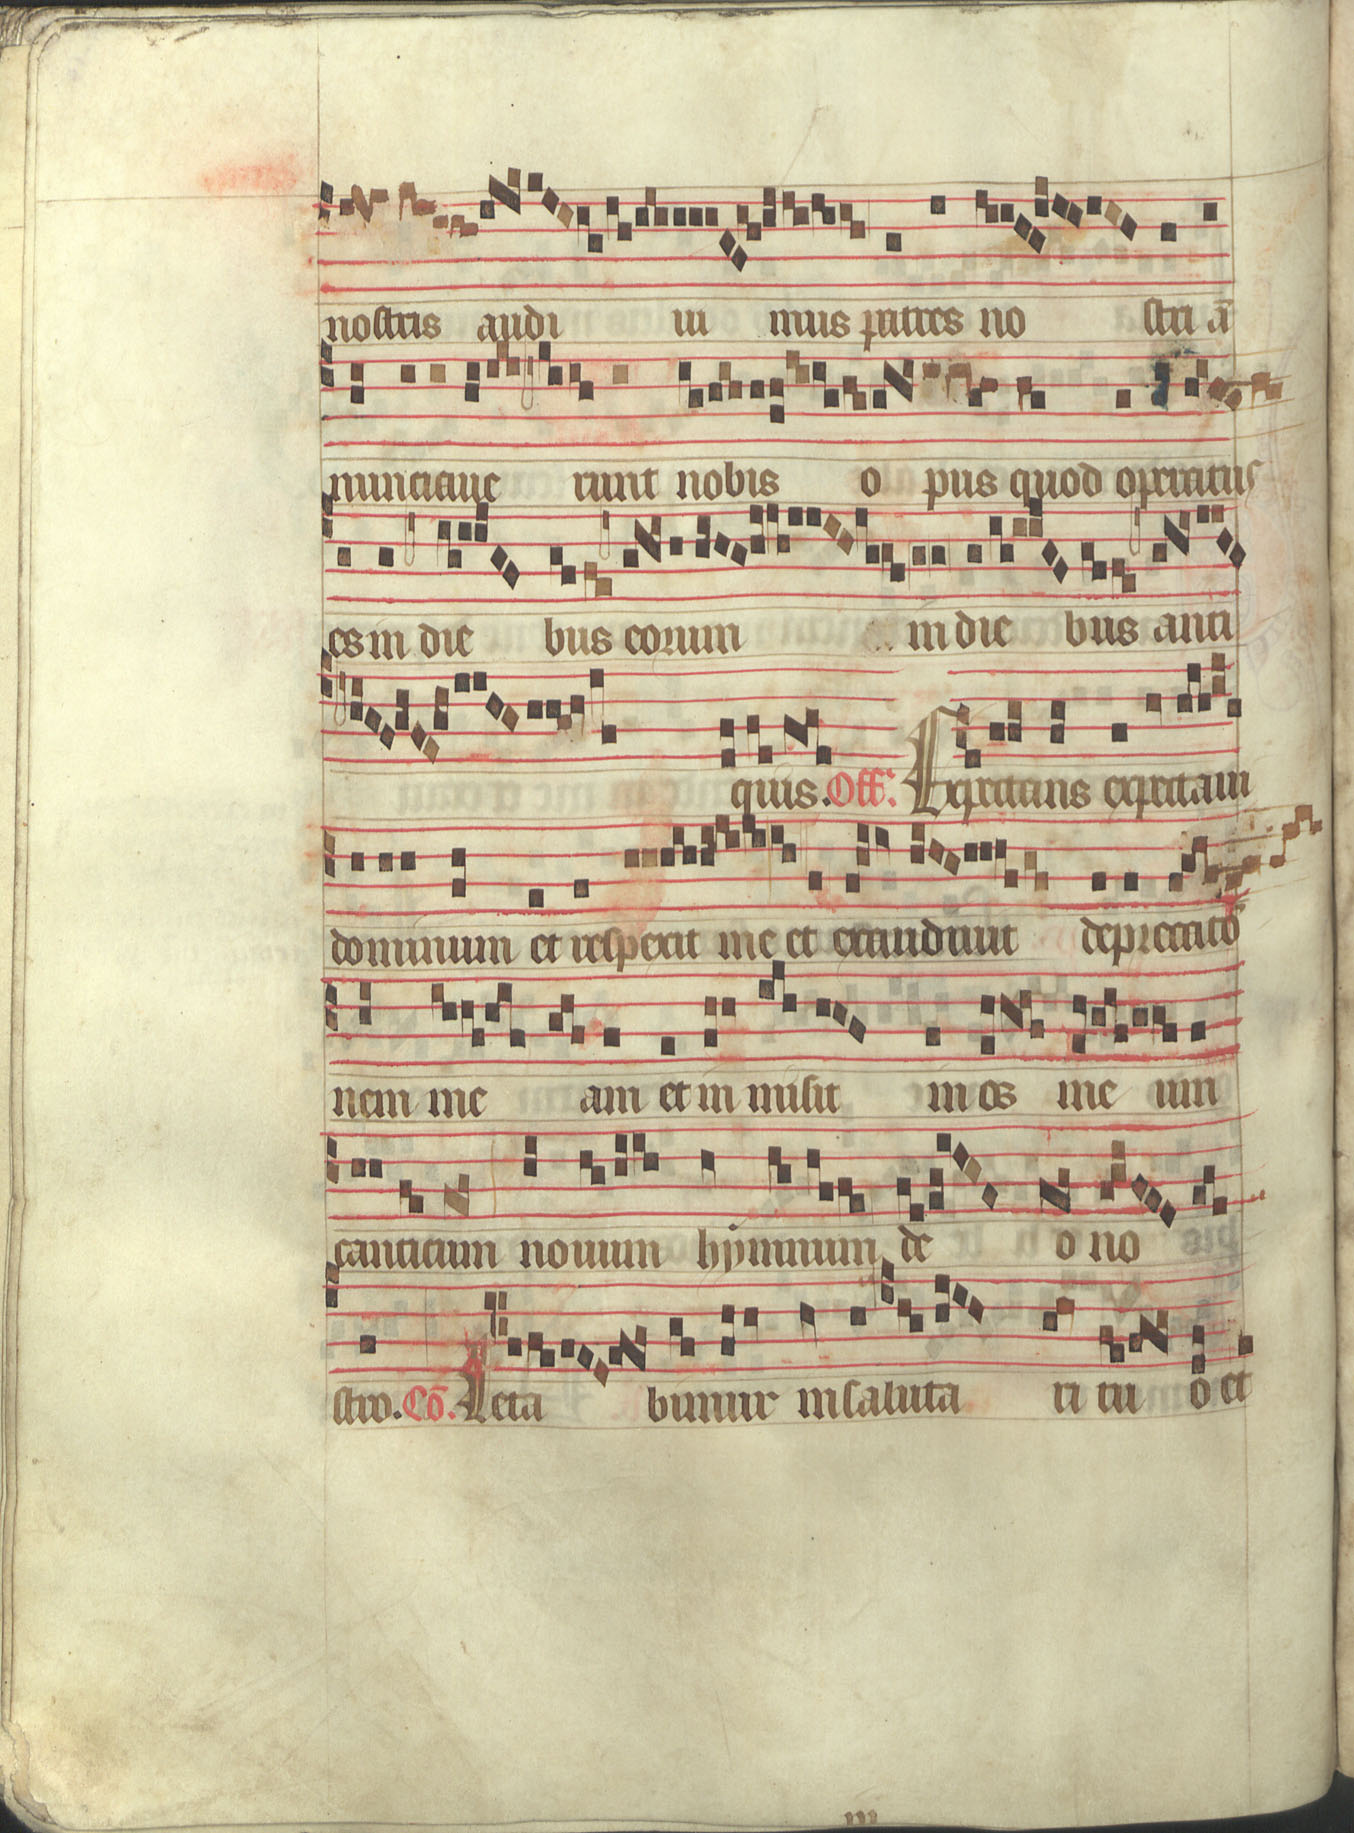 nostris audi ui mus patres no stri ā
nunciaue runt nobis o pus quod operatus
es in die bus eorum in die bus anti
quis. Off. Expectans expectaui
dominum et respexit me et exaudiuit deprecatio
nem me am et in misit in os me um
canticum nouum hÿmnum de o no
stro. Cō. Leta bimur in saluta ri tu o et
III